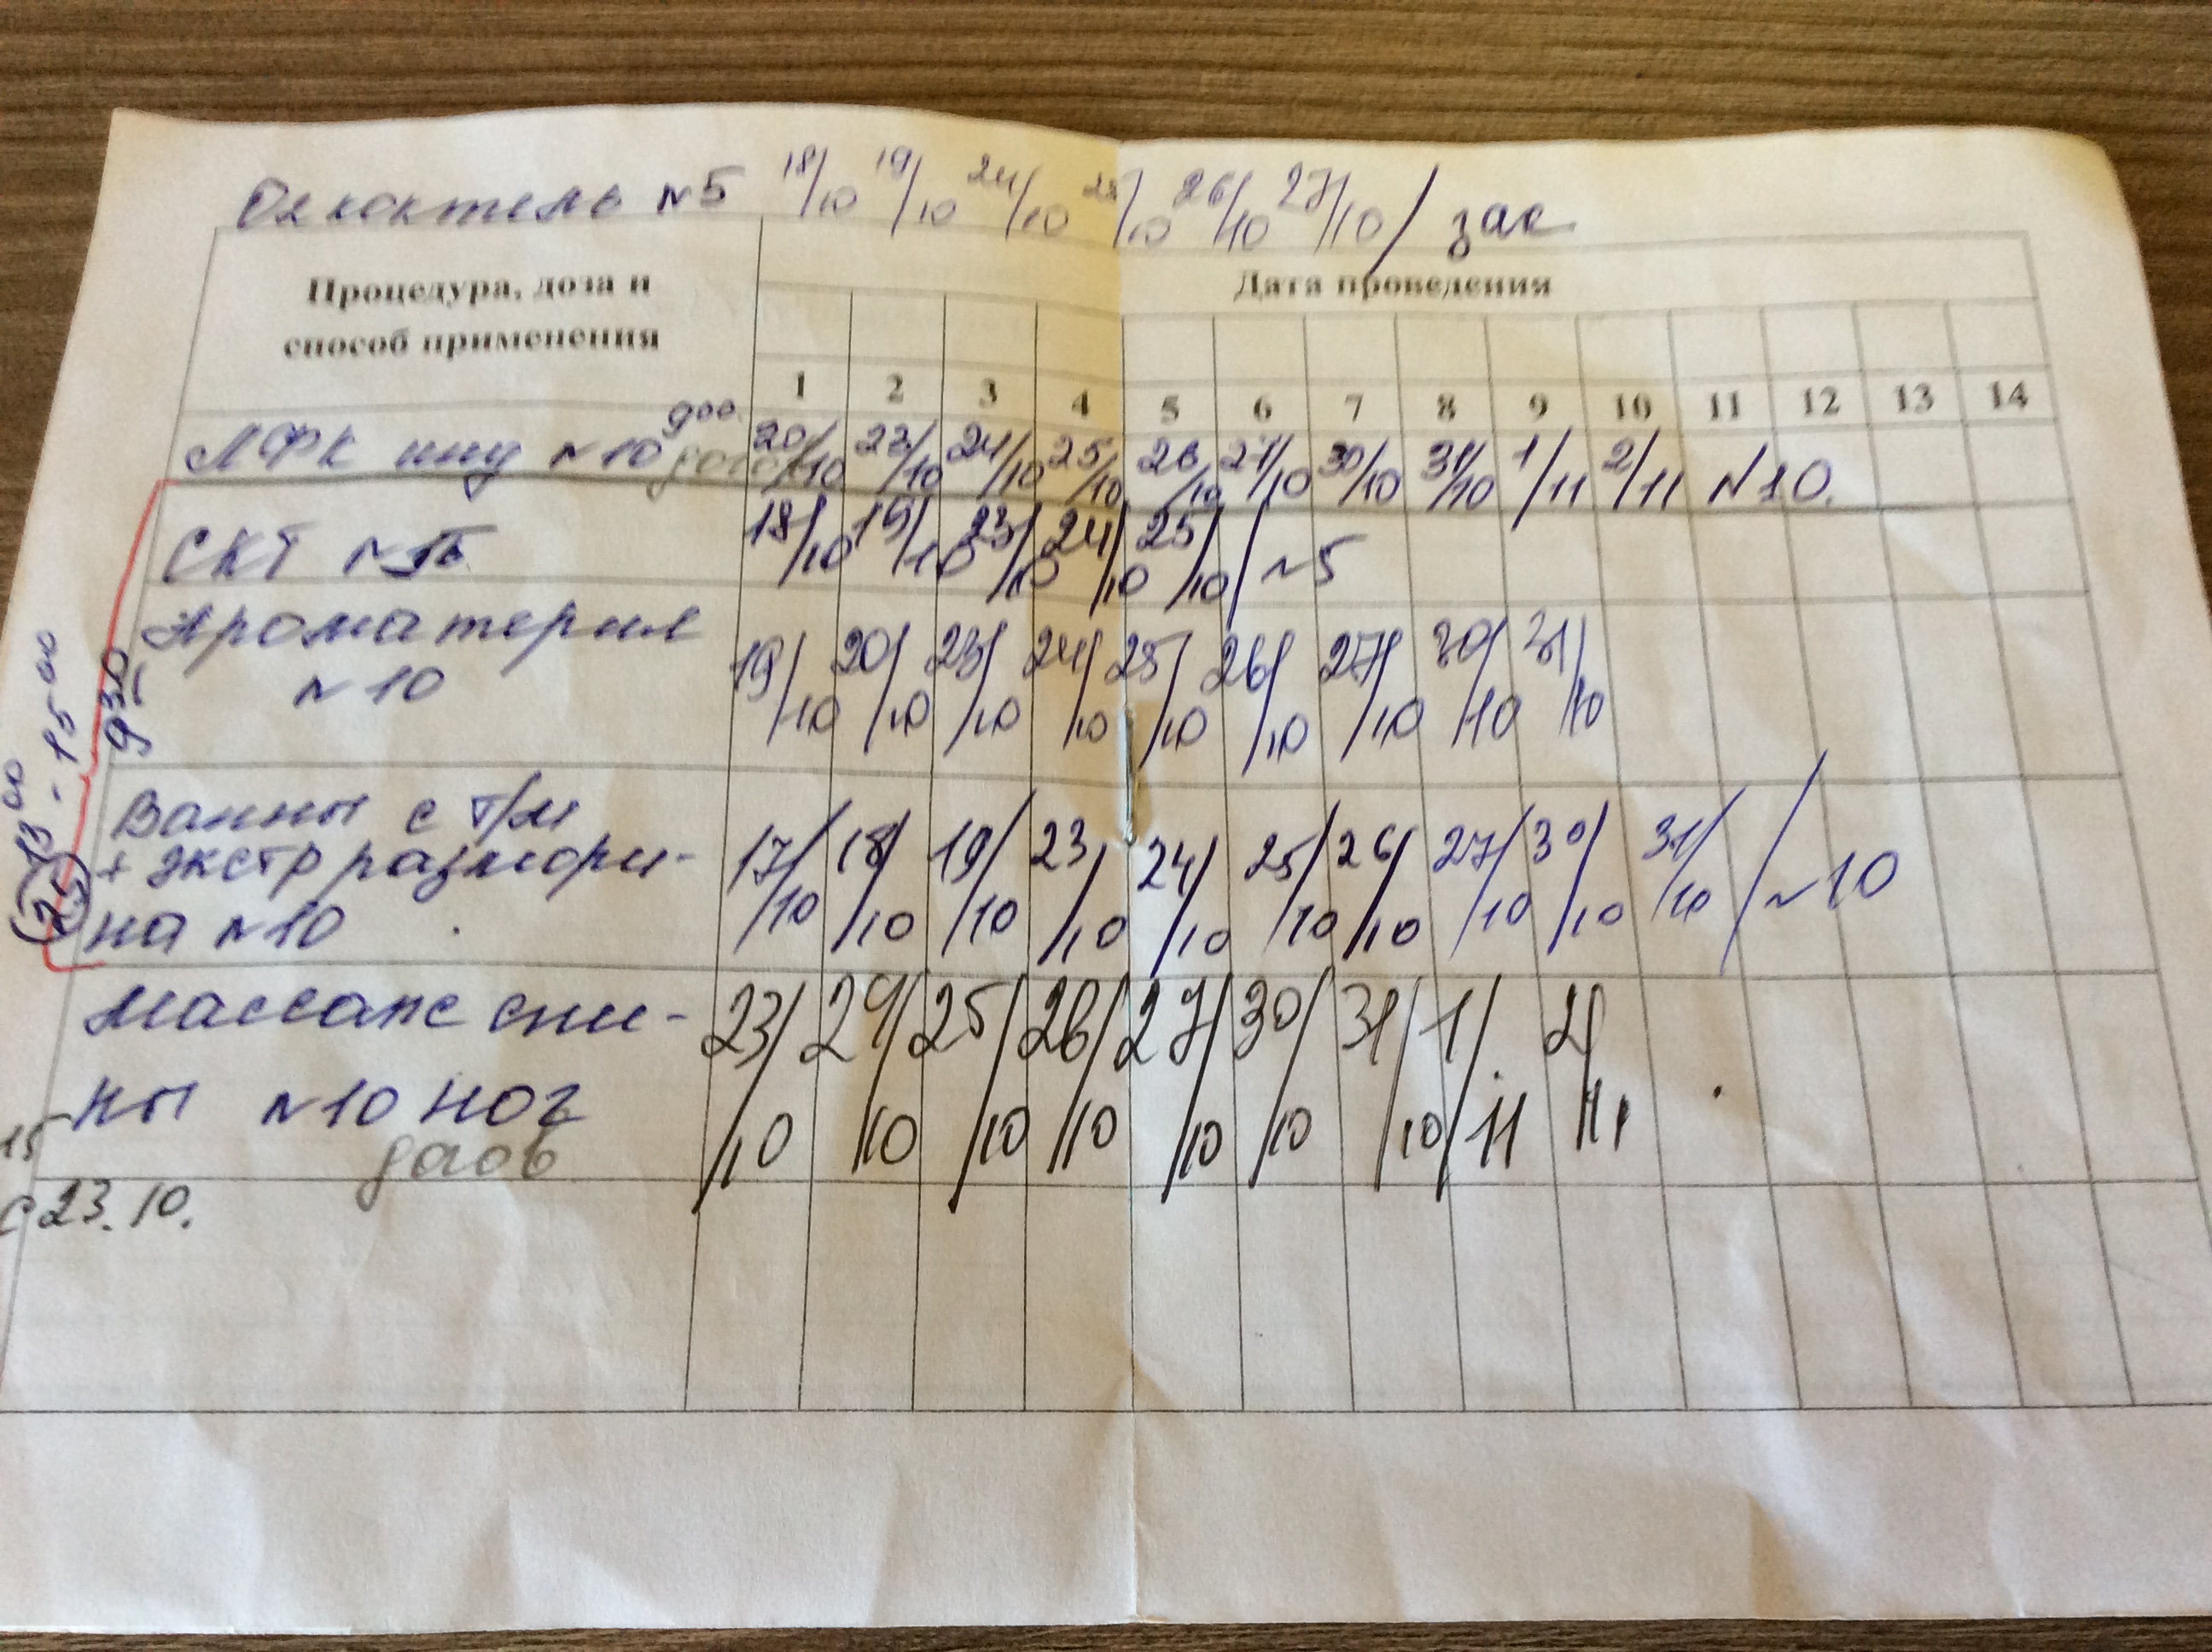 О2 коктель №5 18/10 19/10 24/10 25/10 26/10 27/10 / зак
Процедура, доза и
способ применения
Дата проведения
1 2 3 4 5 6 7 8 9 10 11 12 13 14
ЛФК инд №10 20/10 23/10 24/10 25/10 26/10 27/10 30/10 31/10 1/11 2/11 №10.
СКТ 18/10 19/10 23/10 24/10 25/10 / №5
Ароматерил
№10 19/10 20/10 23/10 24/10 25/10 26/10 27/10 30/10 31/10
9 30
13 00 - 15 00
Ванны с т/м
+ экстр размори-
на №10 17/10 18/10 19/10 23/10 24/10 25/10 26/10 27/10 30/10 31/10 / №10
Массаж спи-
ны №10 ног 23/10 24/10 25/10 26/10 27/10 30/10 31/10 1/11 2/11
15
с 23.10.